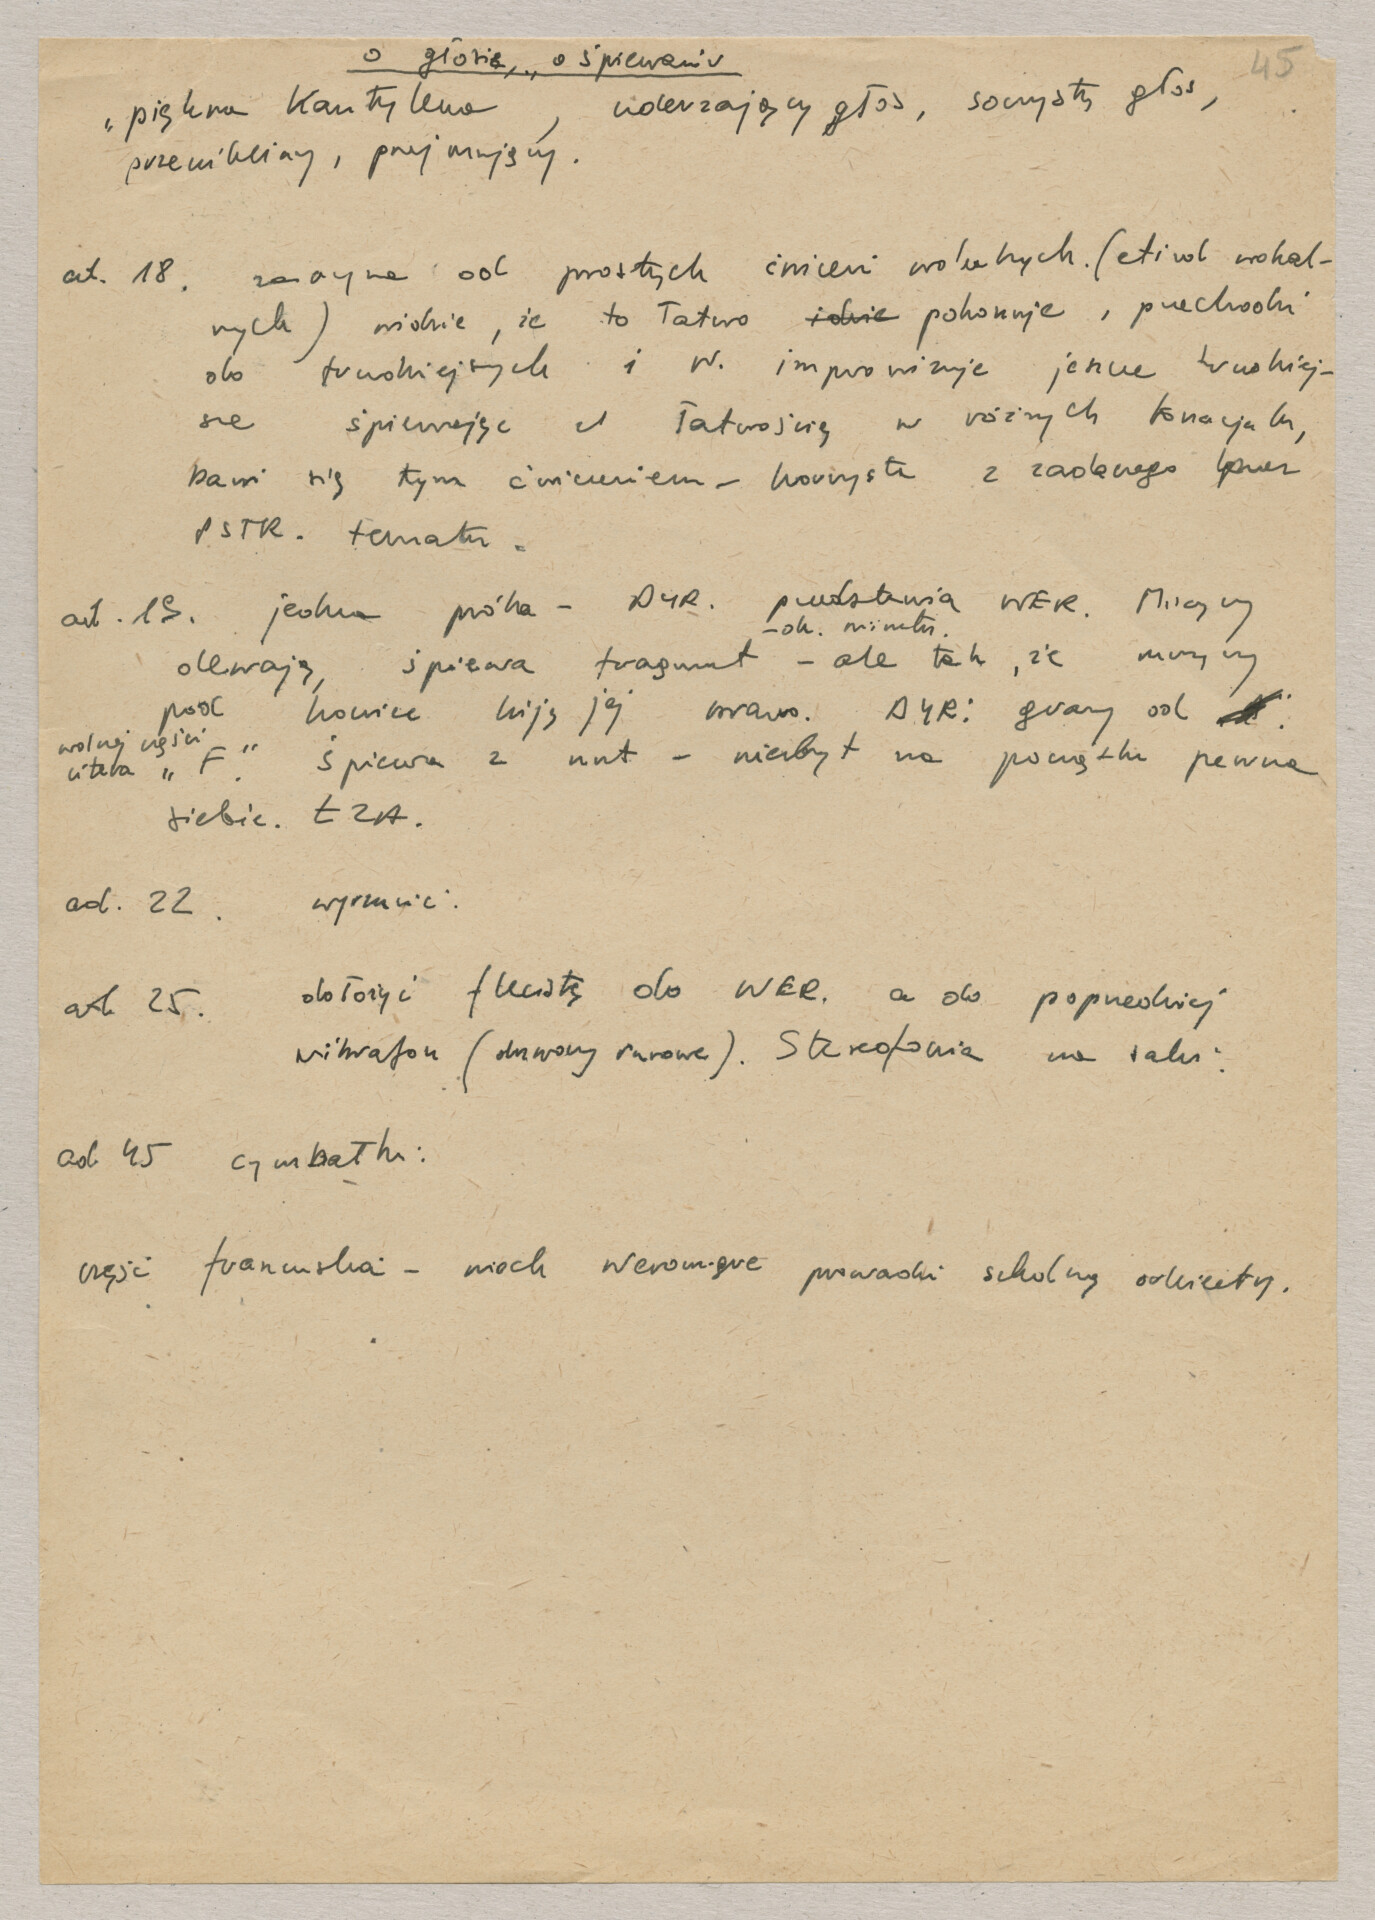 45
o głosie, „ o śpiewaniu
„piękna Kantylena , uderzający głos, soczysty głos,
przenikliwy, przejmujący.
ad. 18. zaczyna od prostych ćwiczeń wokalnych. (etiud wokal-
nych) widzie, że to łatwo idzie pokonuje, przechodzi
do trudniejszych i W. improwizuje jeszcze trudniej-
sze śpiewając z łatwością w różnych tonacjach,
bawi się tym ćwiczeniem – korzysta z zadanego przez
PSTR. tematu.
ad. 19. jedna próba – DYR. przedstawia WER. Muzycy
– ok. minuty.
olewają, śpiewa fragment – ale tak, że muzycy
pod koniec biją jej brawo. DYR: gramy od
wolnej części
litera „F". śpiewa z nut – niezbyt na początku pewna
siebie. ŁZA.
ad. 22. wyrzucić.
ad. 25. dołożyć flecistę do WER. a do poprzedniej
wibrafon (dzwony rurowe). Stereofonia na sali.
ad 45 cymbałki.
część francuska – niech Weronique prowadzi szkolną orkiestrę.